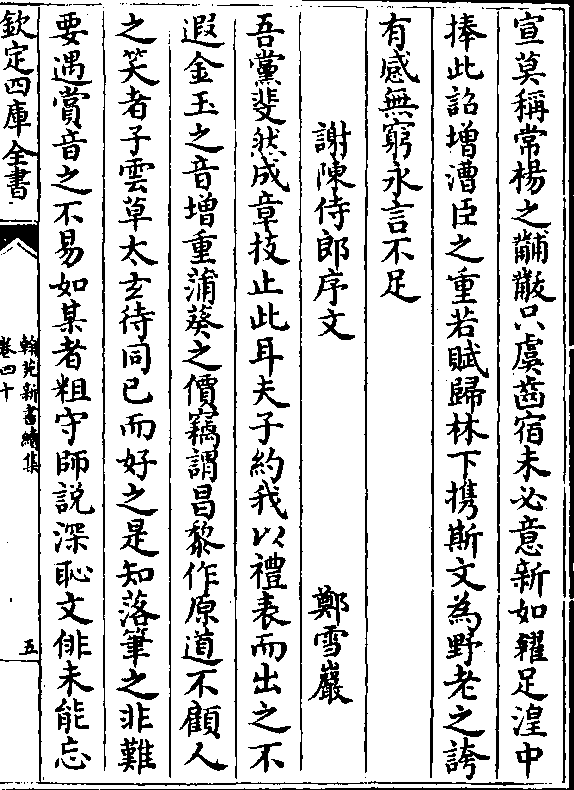 宣莫稱常楊之黼黻只虞齒宿未必意新如䊮足湟中
捧此詔增漕臣之重若賦歸林下携斯文為野老之誇
有感無窮永言不足
謝陳侍郎序文 鄭雪巖
吾黨斐然成章技止此耳夫子約我以禮表而出之不
遐金玉之音增重蒲葵之價竊謂昌黎作原道不顧人
之笑者子雲草太玄待同已而好之是知落筆之非難
要遇賞音之不易如某者粗守師説深恥文俳未能忘
欽定四庫全書
翰苑新書續集
卷四十
五